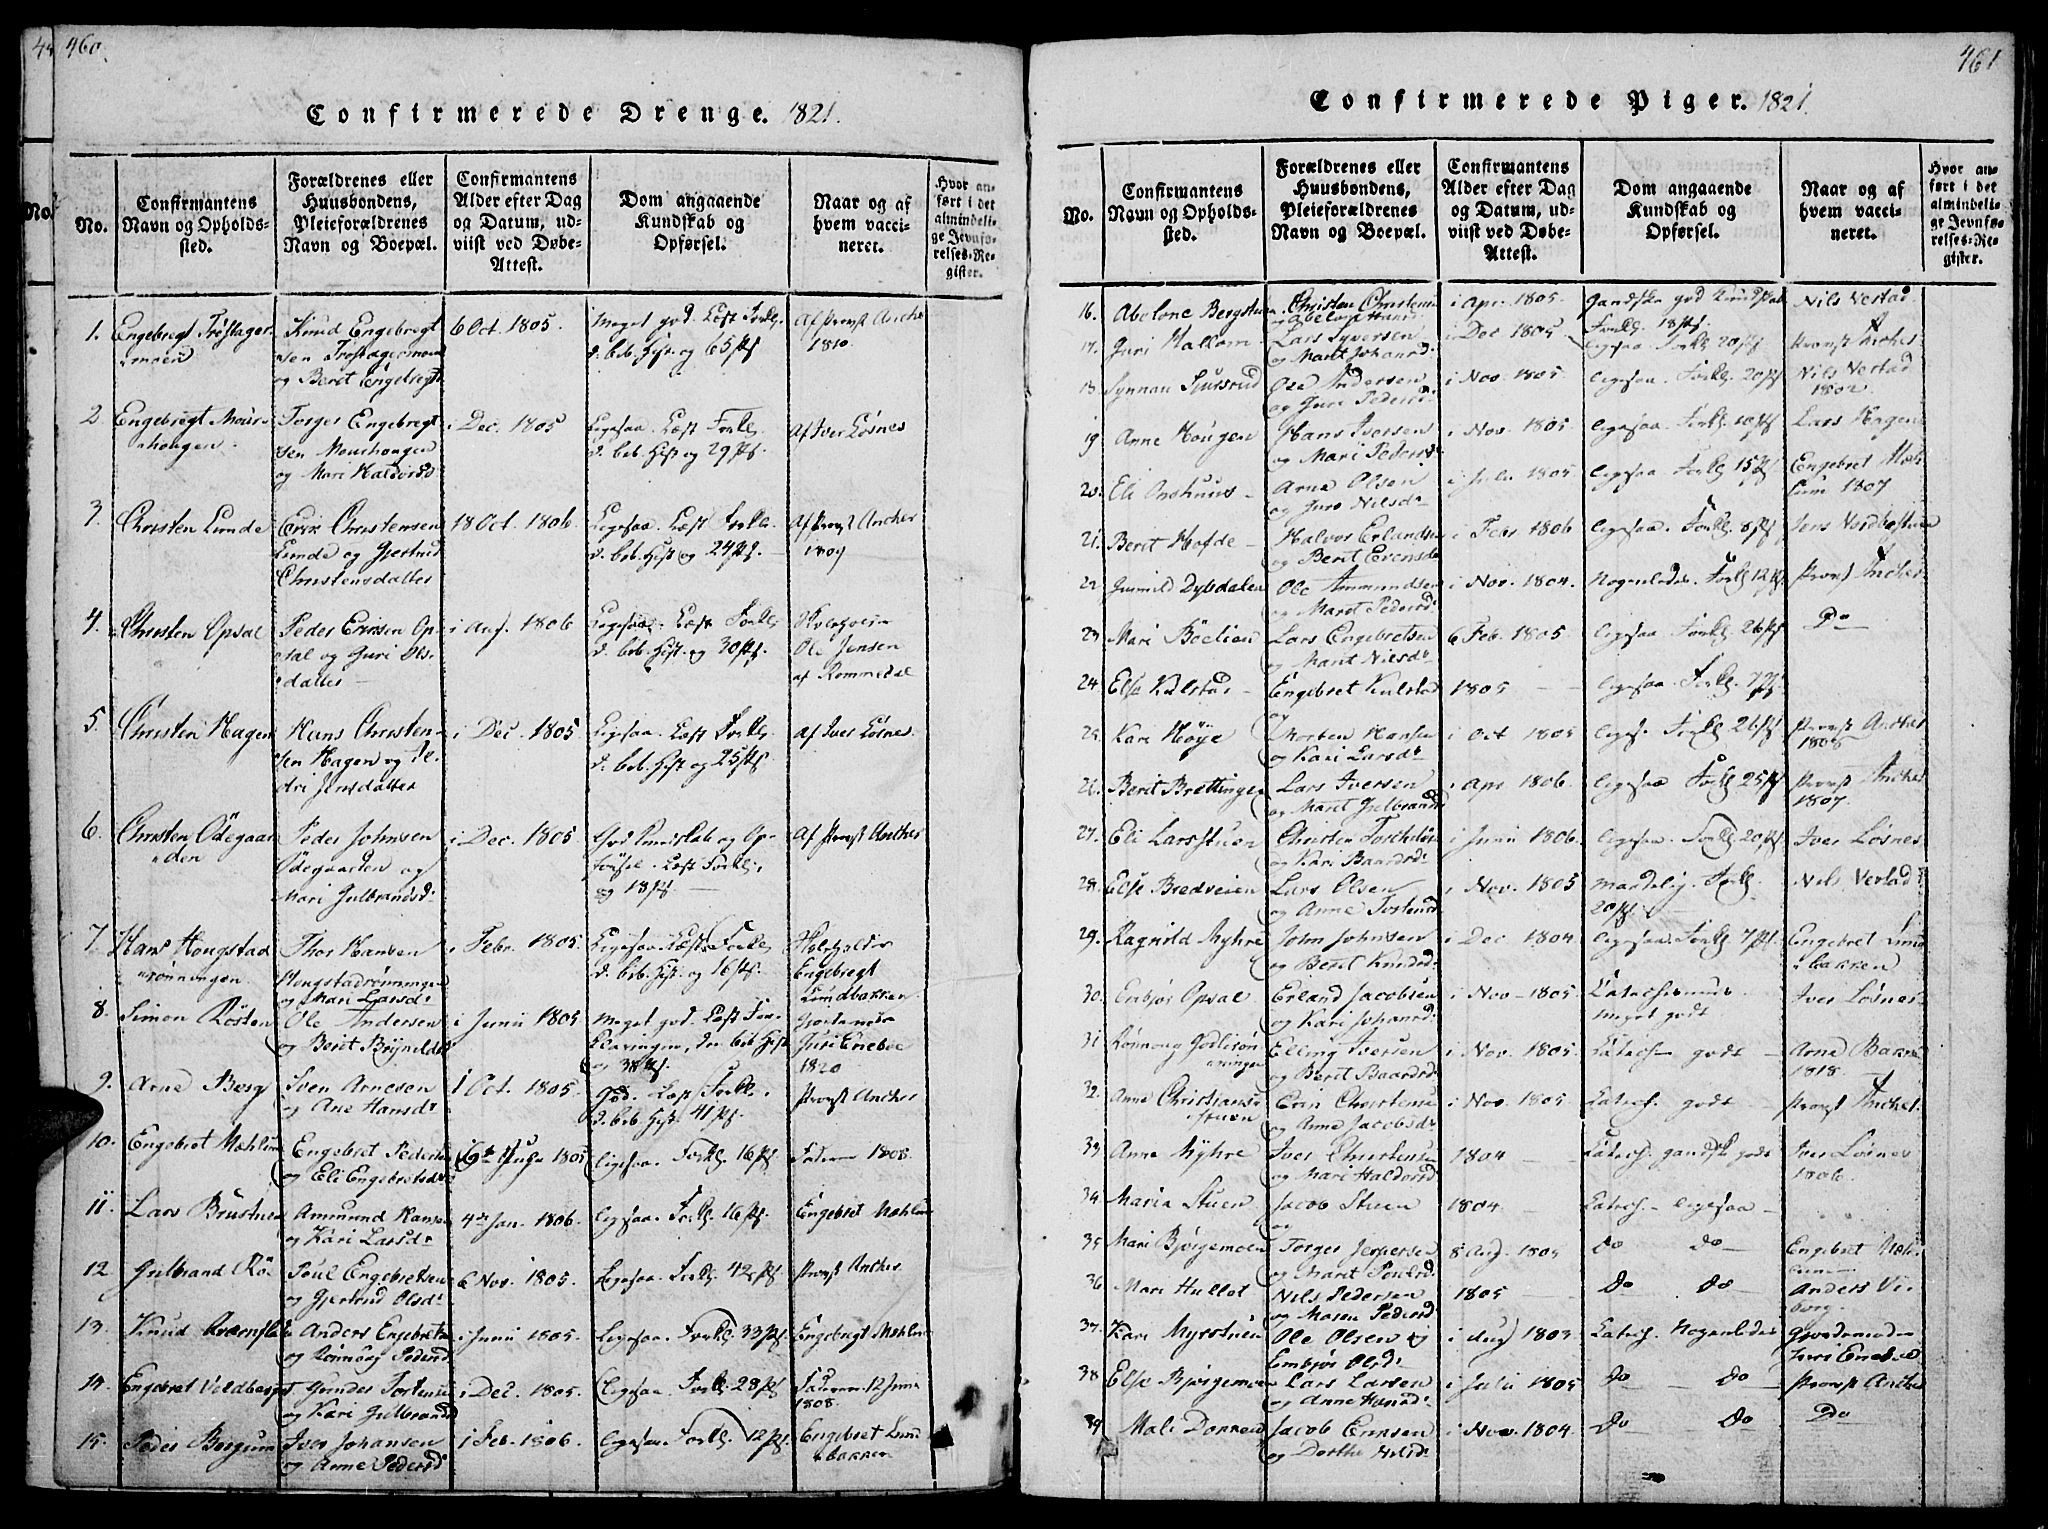 460.
Confirmerede Drenge. 1821.
No.
Confirmantens
Navn og Opholds-
sted.
Forældrenes eller
Huusbondens,
Pleieforældrenes
Navn og Boepæl.
Confirmantens
Alder efter Dag
og Datum, ud-
viist ved Døbe-
Attest.
Dom angaaende
Kundskab og
Opførsel.
Naar og af
hvem vacci-
neret.
Hvor an-
ført i det
almindeli-
ge Jevnfø-
relses-Re-
gister.
1. Engebregt
Knud Engebregt
sen
og Berit Engebregts
6 Oct. 1805.
Meget god. Læst Forkl.
d. bib. Hist. og 65 ps
Af Provst Ancher
1810
2. Engebregt
Torger Engebregt
sen
og Mari Haldorsd
i Dec. 1805
Ligesaa. Læst Forkl.
d. bib. Hist og 29 ps
Af Iver Løsnes
3. Christen Lunde
Erik Christensen
Lunde og Gjertrud
Christensdatter
18 Oct. 1806
Ligesaa. Læst Forkl.
d. bib. Hist og 24 ps.
Af Provst Ancher
1809
4. Christen Opsal
Peder Ericsen Op-
sal og Guri Ols-
datter
i Aug. 1806
Ligesaa. Læst Forkl.
d. bib. Hist. og 30 ps.
Ole Jensen
af Rommedal
5. Christen Hagen
Hans Christen-
sen Hagen og
Jensdatter
i Dec. 1805
Ligesaa. Læst Forkl.
d. bib. Hist og 25 ps
Af Iver Løsnes
6. Christen Ödegaar
den
Peder Johnsen
Ödegaarden og
Mari Gulbrandsd:
i Dec. 1805
God Kundskab og Op-
førsel. Læst Forkl.
og 18 ps
Af Provst Ancher
7. Hans Hongstad
rønningen
Thor Hansen
Hongstadrønningen
og Mari Larsd:
i Febr. 1805.
Ligesaa. Læst Forkl.
d. bib. Hist. og 16 ps.
Engebregt
Lundbakken
8. Simon Kösten
Ole Andersen
og Berit Brynildsd
i Junii 1805
Meget god. Læst For-
klaringen, den bib Hist
og 38 ps.
Guri Eneboe
1820
9. Arne Berg
Sven Arnesen
og Ane Hansd:
1 Oct. 1805.
God. Læst Forkl.
d. bib. Hist. 41 ps.
Provst Ancher
10. Engebret Mehlum
Engebret Peders
og Eli Engebretsd
1805
Ligesaa. Forkl. 16 ps
1808.
11. Lars
Ammund Hansen
og Kari Larsd:
4de Jan. 1806.
Ligesaa. Forkl. 16 ps.
Engebret Mehlum
12. Gulbrand Röe
Poul Engebretsen
og Gjertrud Olsd:
6 Nov. 1805.
Ligesaa. Forkl. 42 ps
Provst Ancher
13. Knud
Anders Engebrets
og Rønnaug Pedersd
i Junii 1805.
Ligesaa. Forkl. 33 ps
Engebregt Mehlum
14. Engebret Voldberget
Gunder Torsten
og Kari Gulbrandsd
i Dec. 1805.
Ligesaa. Forkl. 28 ps
12 Junii
1808.
15. Peder Borgum
Iver Johansen
og Anne Pedersd
1 Feb. 1806.
Ligesaa. Forkl. 12 ps.
Engebret Lund
bakken
461
Confirmerede Piger. 1821.
No.
Confirmantens
Navn og Opholds-
sted.
Forældrenes eller
Huusbondens,
Pleieforældrenes
Navn og Boepæl.
Confirmantens
Alder efter Dag
og Datum, ud-
viist ved Døbe-
Attest.
Dom angaaende
Kundskab og
Opførsel.
Naar og af
hvem vacci-
neret.
Hvor an-
ført i det
almindeli-
ge Jevnfø-
relses-Re-
gister.
16. Abelone Bergstuen
Christen Christensen
og Abelone Hansd
i Apr. 1805.
Gandske god Kundskab
Forkl. 18 ps.
Nils Vestad
17. Guri Hallom
Lars Syversen
og Marit Johansd
i Dec 1805
Ligesaa Forkl. 20 ps
Provst Ancher
18 Synnau Sjursrud
Ole Andersen
og Guri Pedersd:
i Nov. 1805.
Ligesaa. Forkl. 20 ps
Nils Vestad
1802
19 Anne Hougen
Hans Iversen
og Mari Pedersd
i Nov. 1805
Ligesaa Forkl. 10 ps
Lars Hagen
20. Eli Aashuus
Arne Olsen
og Guro Nilsd:
i Julii 1805
Ligesaa Forkl 15 ps
Engebret Meh-
lum 1807
21. Berit Hofde
Halvor Erlandsen
og Berit Evensd
i Febr 1806
Ligesaa. Forkl. 8 ps
22 Gunnild Dybdalen
Ole Ammundsen
og Marit Pedersd:
i Nov. 1804.
Nogenledes. Forkl 12 ps
Provst Ancher
23 Mari Böelien
Lars Engebretsen
og Marit Nilsd:
6 Feb. 1805.
Ligesaa Forkl. 26 ps
Do
24 Else Kulstad
Engebret Kulstad
og
1805
Ligesaa. Forkl. 7 ps.
25. Kari Höye
Morten Hansen
og Kari Larsd:
i Oct 1805
Liges. Forkl. 26 ps
Provst Ancher
1808
26. Berit Brettingen
Lars Iversen
og Marit Gulbrandsd
i Apr 1806.
Ligesaa Forkl 25 ps
Provst Ancher
1807.
27. Eli Larsstuen
Christen
og Kari Baardsd:
i Junii 1806.
Ligesaa. Forkl. 20 ps
Iver Løsnes
28. Else Bredveien
Lars Olsen
og Anne Torstensd
i Nov. 1805
Maadelig. Forkl.
20 ps.
Nils Vestad
29. Ragnild Myhre
John Johnsen
og Berit Knudsd:
i Dec 1804.
Ligesaa. Forkl. 7 ps.
Engebret Lund
bakken
30. Embjør Opsal
Erland Jacobsen
og Kari Johansd:
i Nov - 1805.
Catechismus
meget godt
Iver Løsnes
31 Rønnoug
Elling Iversen
og Berit Baardsd:
i Nov. 1805.
Catech - godt -
Arne Bakke
1818.
32. Anne Christians-
stuen
Eric Christensen
og Anne Jacobsd:
i Nov. 1805.
Catech. godt -
Provst Ancher
33 Anna Myhre
Iver Christensen
og Mari Haldorsd
1804
Catech. gandsk godt
Iver Løsnes
1806.
34 Maria Stuen
Jacob Stuen
og
1804
Catech. - ligesaa -
35 Mari Bjørgemoen
Torger Jespersen
og Marit Poulsd:
8 Aug. 1805
Do Do
Engebret Meh-
lum
36 Mari Hullet
Nils Pedersen
og Maren Pedersd
1805
Do Do
Anders Vi-
borg.
37. Kari Myrstuen
Ole Olsen og
Embjør Olsd:
i Aug 1803
Catech. Nogenledes
Gjordemoder
Guri Eneboe
38 Else Bjørgemoen
Lars Larsen
og Anne Hansd:
i Julii 1805
Do Do
Provst Ancher
39 Mali
Jacob Ericsen
og Dorthe Nilsd:
i Nov. 1804.
Do Do
Do